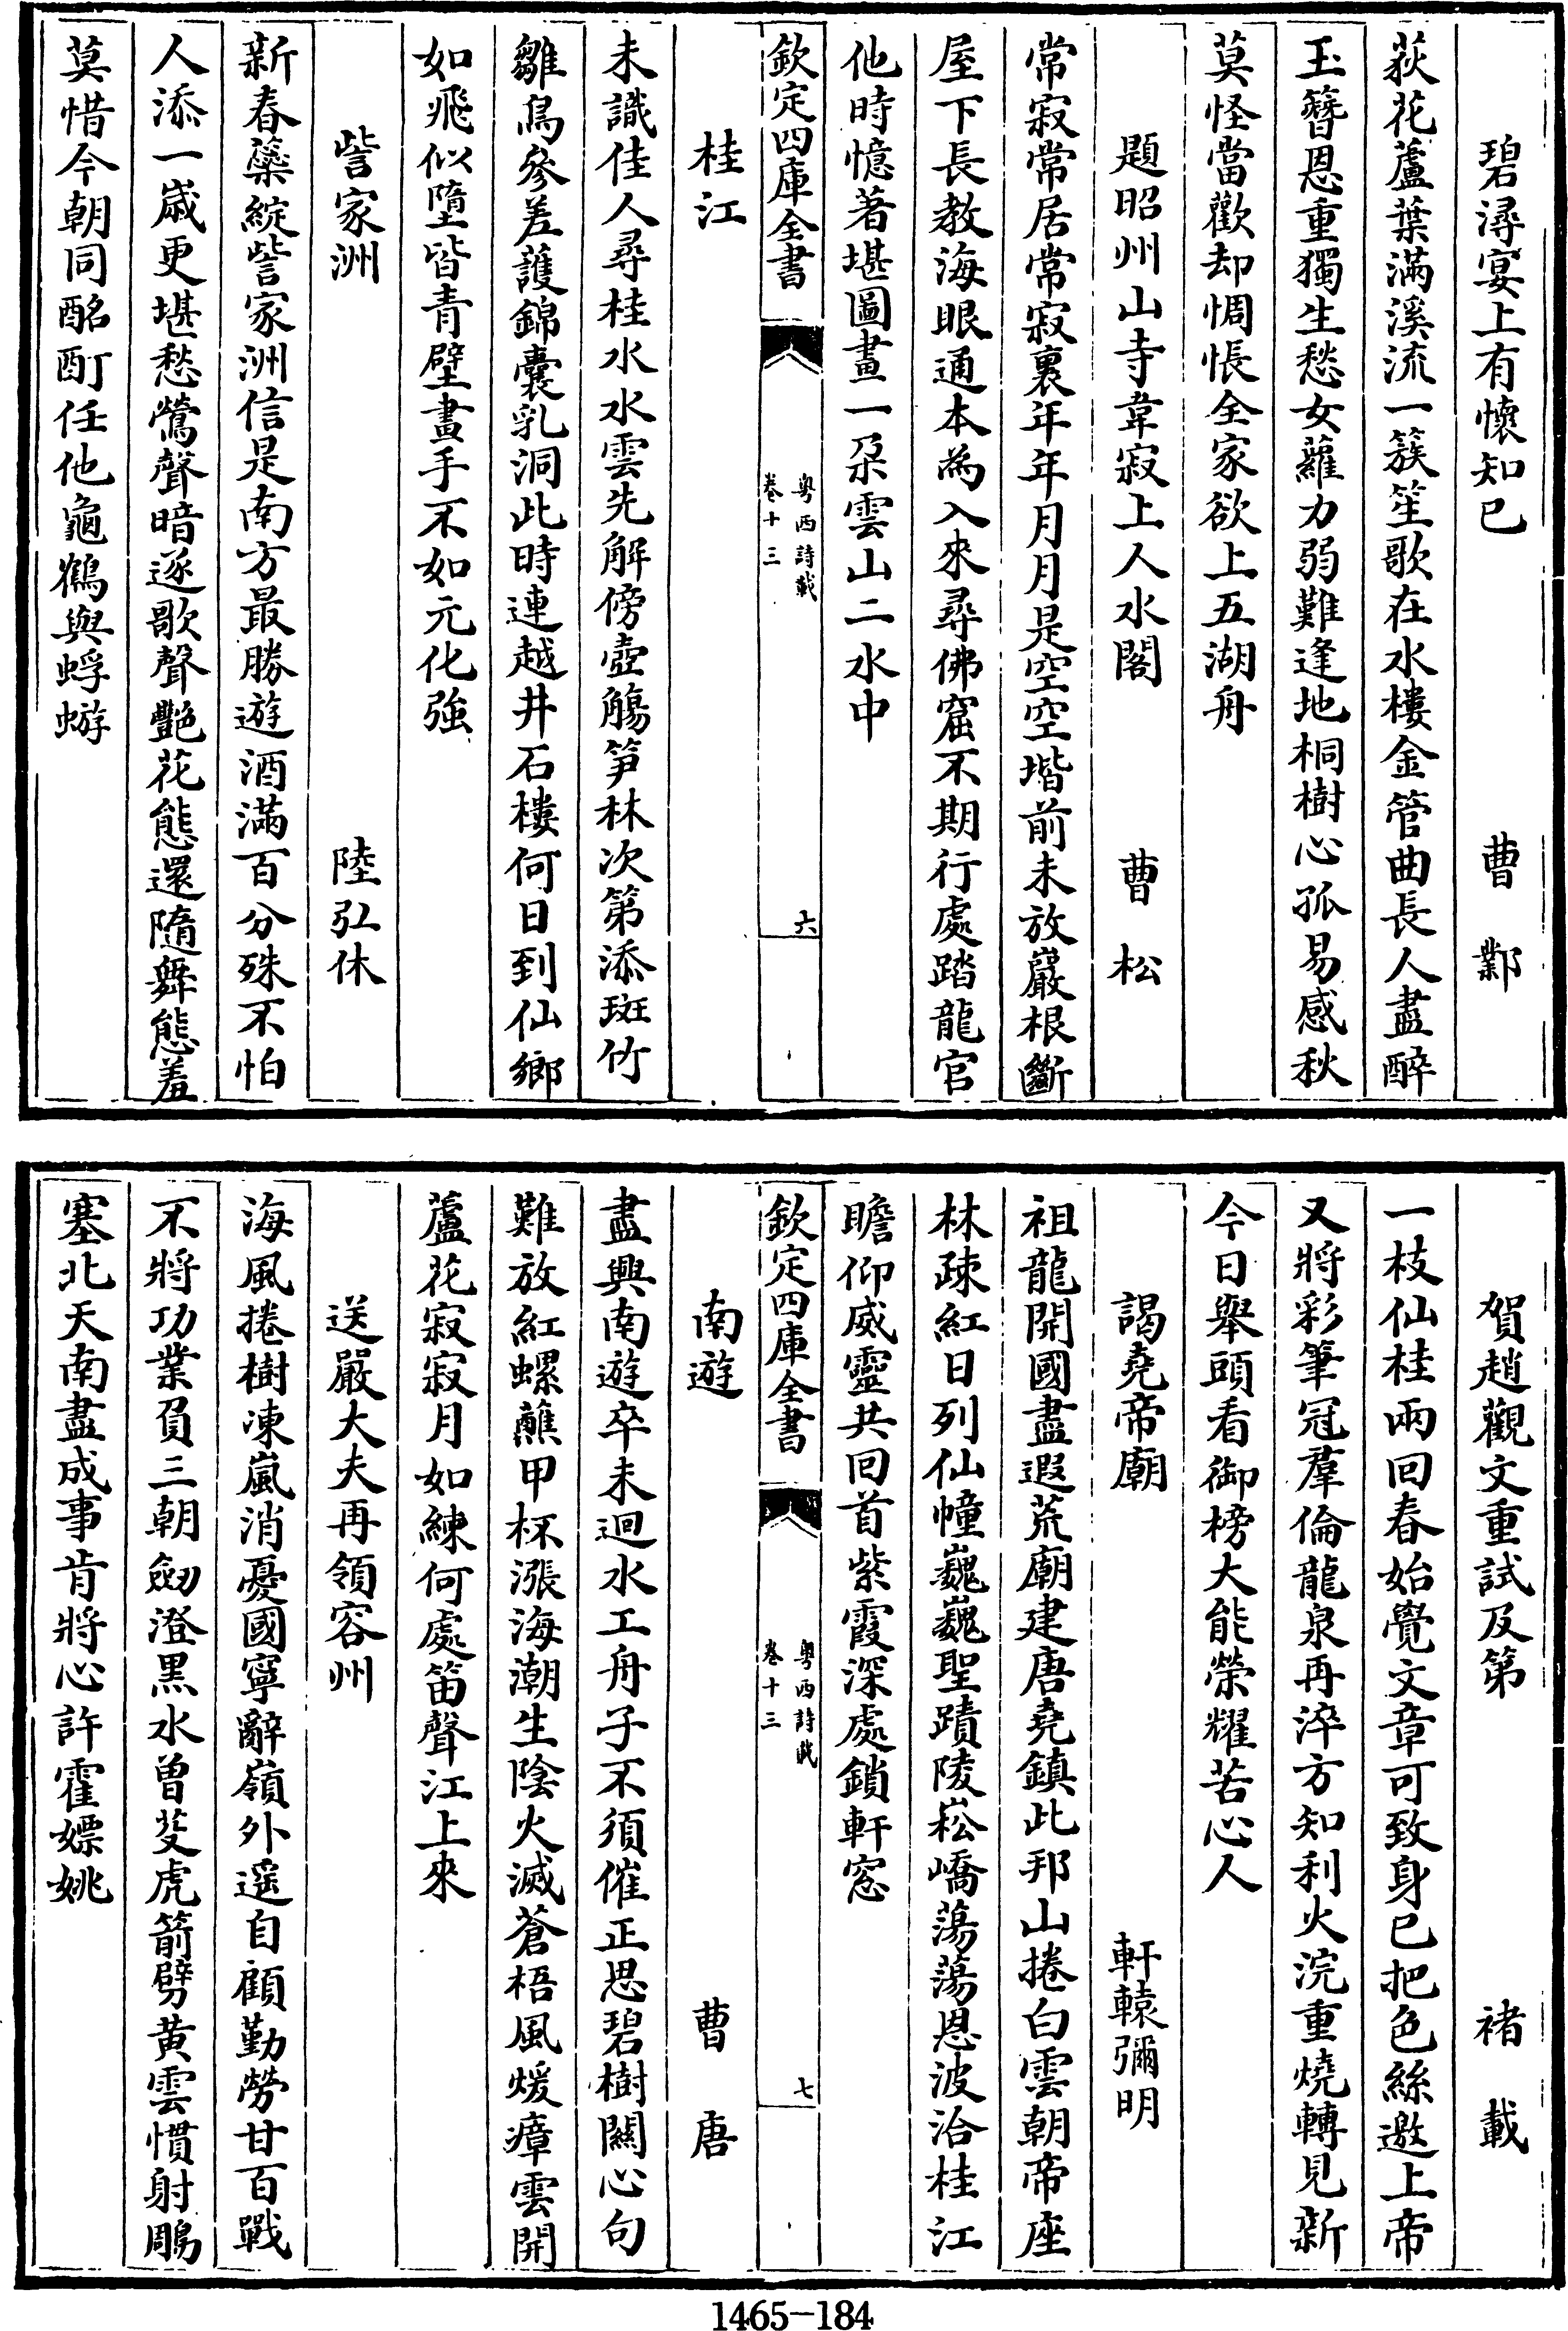 碧潯宴上有懷知已 曹鄴
荻花蘆葉滿溪流一簇笙歌在水樓金管曲長人盡醉
玉簪恩重獨生愁女蘿力弱難逢地桐樹心孤易感秋
莫怪當歡却惆悵全家欲上五湖舟
題昭州山寺韋寂上人水閣 曹松
常寂常居常寂裏年年月月是空空堦前未放巖根斷
屋下長教海眼通本為入來尋佛窟不期行處踏龍官
他時憶著堪圖畫一朶雲山二水中
欽定四庫全書 粤西詩載 卷十三 六
桂江
未識佳人尋桂水水雲先解傍壺觴笋林次第添斑竹
雛鳥參差護錦囊乳洞此時連越井石樓何日到仙鄉
如飛似墮皆青壁畫手不如元化強
訾家洲 陸弘休
新春蘂綻訾家洲信是南方最勝遊酒滿百分殊不怕
人添一歲更堪愁鶯聲暗逐歌聲艷花態還隨舞態羞
莫惜今朝同酩酊任他龜鶴與蜉蝣
賀趙觀文重試及第 褚載
一枝仙桂兩回春始覺文章可致身已把色絲邀上帝
又將彩筆冠羣倫龍泉再淬方知利火浣重燒轉見新
今日舉頭看御榜大能榮耀苦心人
謁堯帝廟 軒轅彌明
祖龍開國盡遐荒廟建唐堯鎮此邦山捲白雲朝帝座
林疎紅日列仙幢巍巍聖蹟陵崧嶠蕩蕩恩波洽桂江
瞻仰威靈共回首紫霞深處鎖軒窓
欽定四庫全書 粤西詩載 卷十三 七
南遊 曹唐
盡興南遊卒未迴水工舟子不須催正思碧樹關心句
難放紅螺蘸甲杯漲海潮生陰火滅蒼梧風煖瘴雲開
蘆花寂寂月如練何處笛聲江上來
送嚴大夫再領容州
海風捲樹凍嵐消憂國寧辭嶺外遥自顧勤勞甘百戰
不將功業負三朝劒澄黑水曾芟虎箭劈黄雲慣射鵰
塞北天南盡成事肯將心許霍嫖姚
1465-184